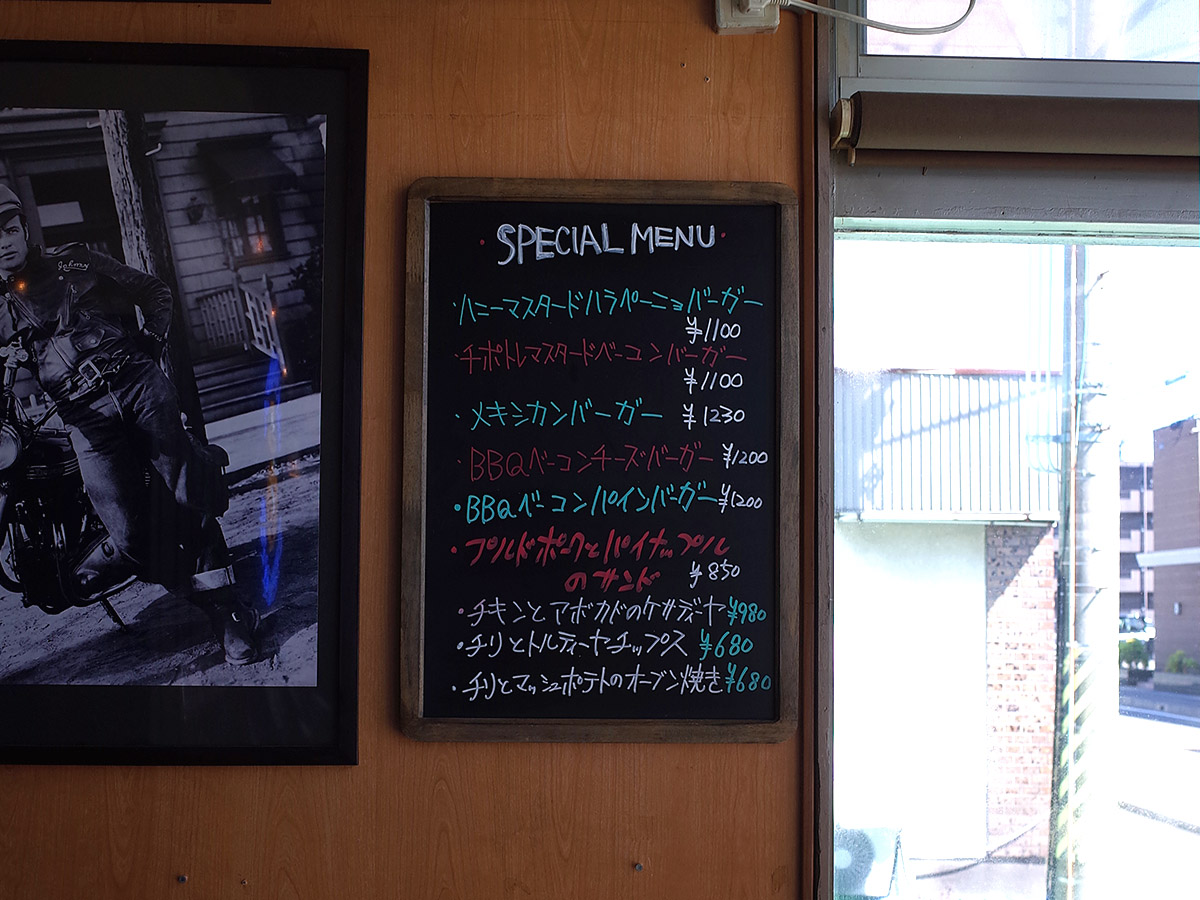 Johnny
SPECIAL MENU
・ハニーマスタードハラペーニョバーガー
¥1100
・チポトレマスタードベーコンバーガー
¥1100
・メキシカンバーガー ¥1230
・BBQベーコンチーズバーガー ¥1200
・BBQベーコンパインバーガー ¥1200
・プルドポークとパイナップル
のサンド ¥850
・チキンとアボカドのケサディーヤ ¥980
・チリとトルティーヤチップス ¥680
・チリとマッシュポテトのオーブン焼き ¥680